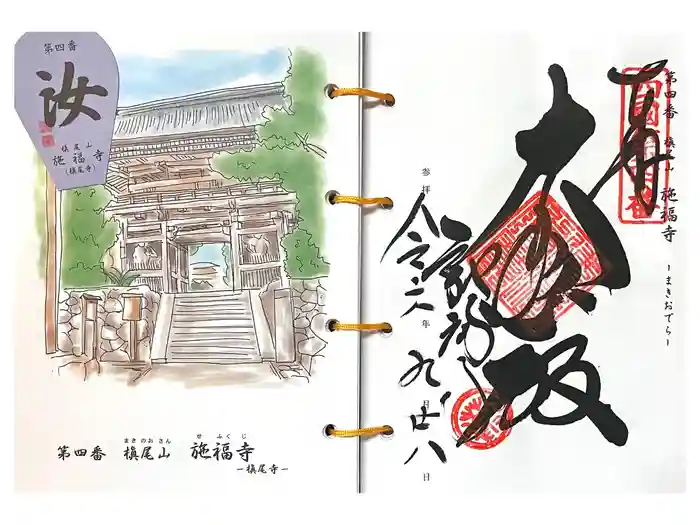 第四番
汝
槇尾山
施福寺
(槇尾寺)
まきのおさん せふくじ
第四番 槇尾山 施福寺
ー槇尾寺ー
第四番 槇尾山 施福寺 ーまきおでらー
奉
参拝 令六年九月廿八日